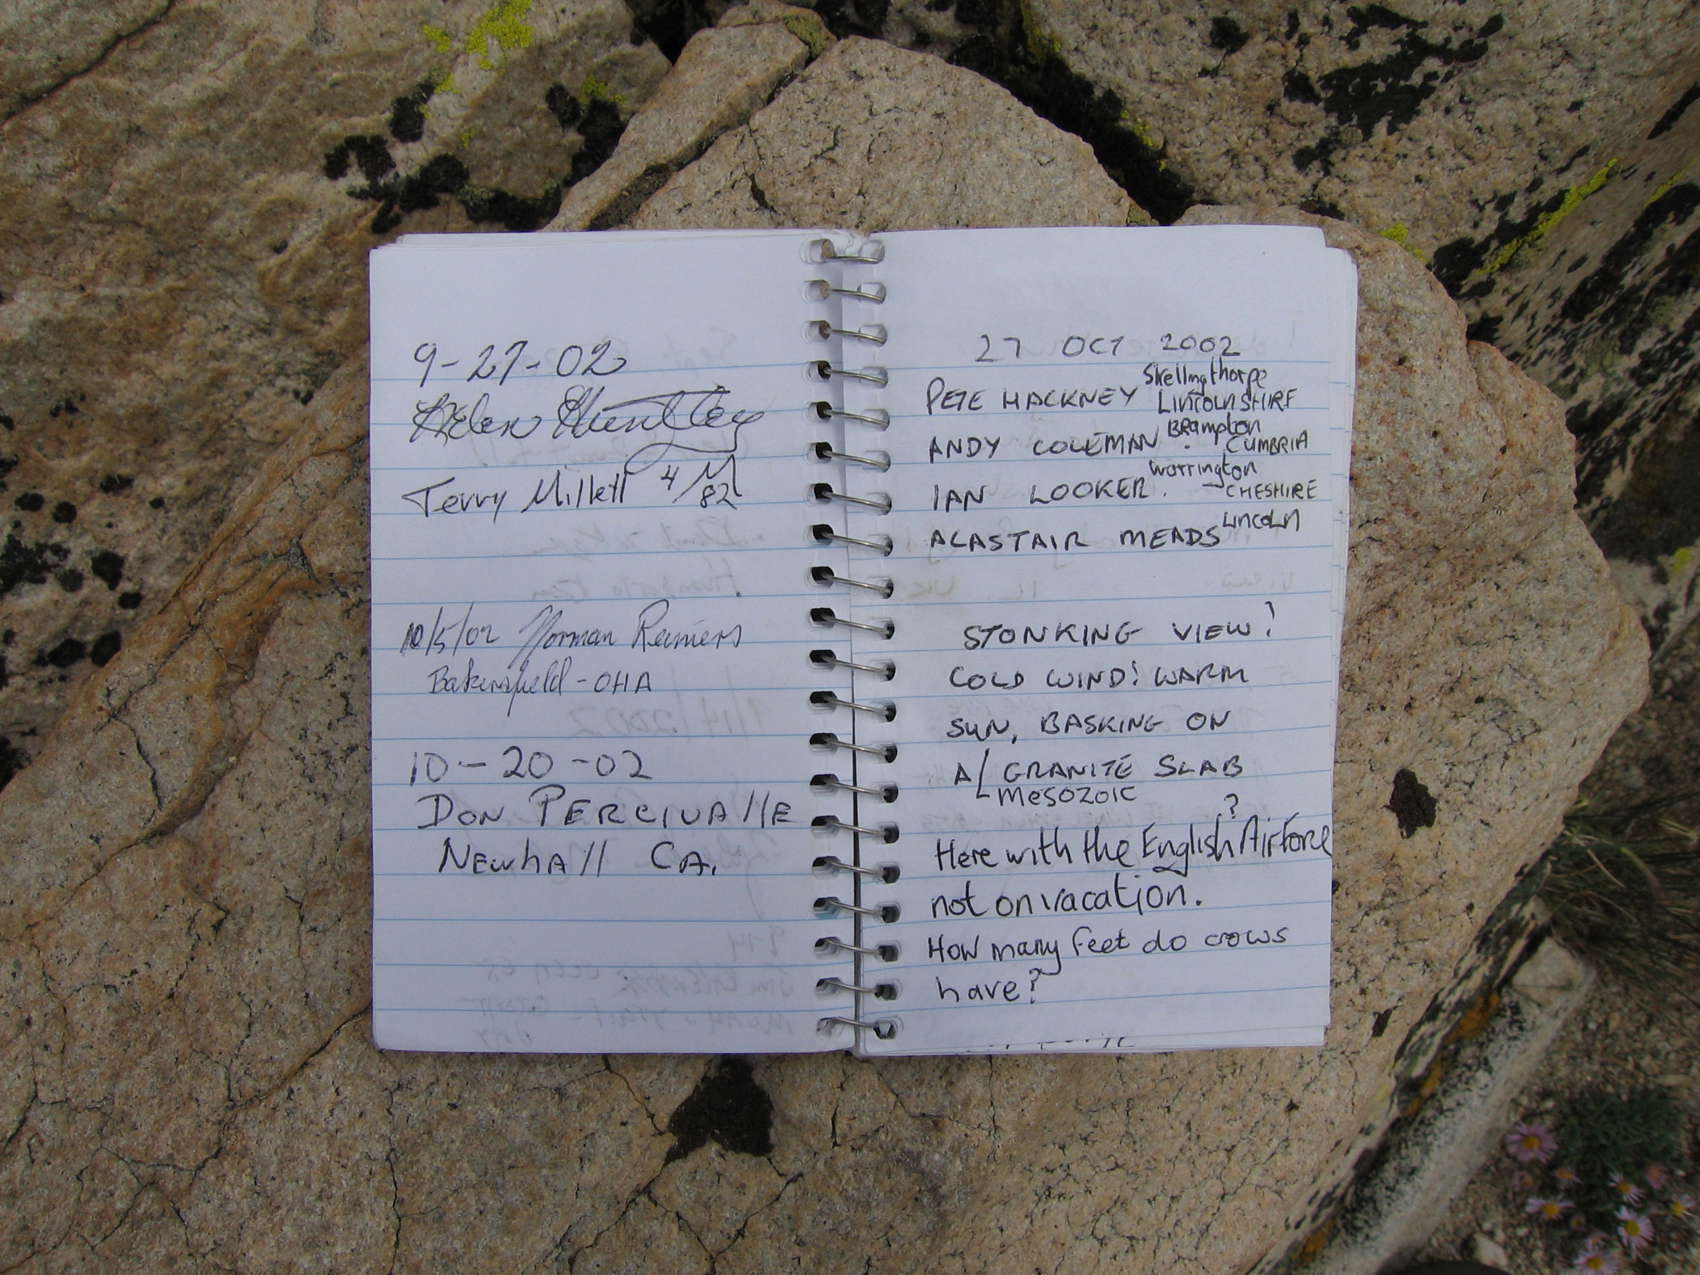 9-27-02
Helen Huntley
Terry Millett 4/M
82
10/5/02 Norman Reiniers
Bakersfield - OHA
10-20-02
DON PERCIVAllE
NEWhAll CA.
27 OCT 2002
PETE HACKNEY Skellingthorpe
LINCOLNSHIRE
ANDY COLEMAN. Brampton
CUMBRIA
IAN LOOKER. Warrington
CHESHIRE
ALASTAIR MEADS LINCOLN
STONKING VIEW!
COLD WIND! WARM
SUN, BASKING ON
A/ GRANITE SLAB
MESOZOIC ?
Here with the English Air Force
not on vacation.
How many feet do crows
have?